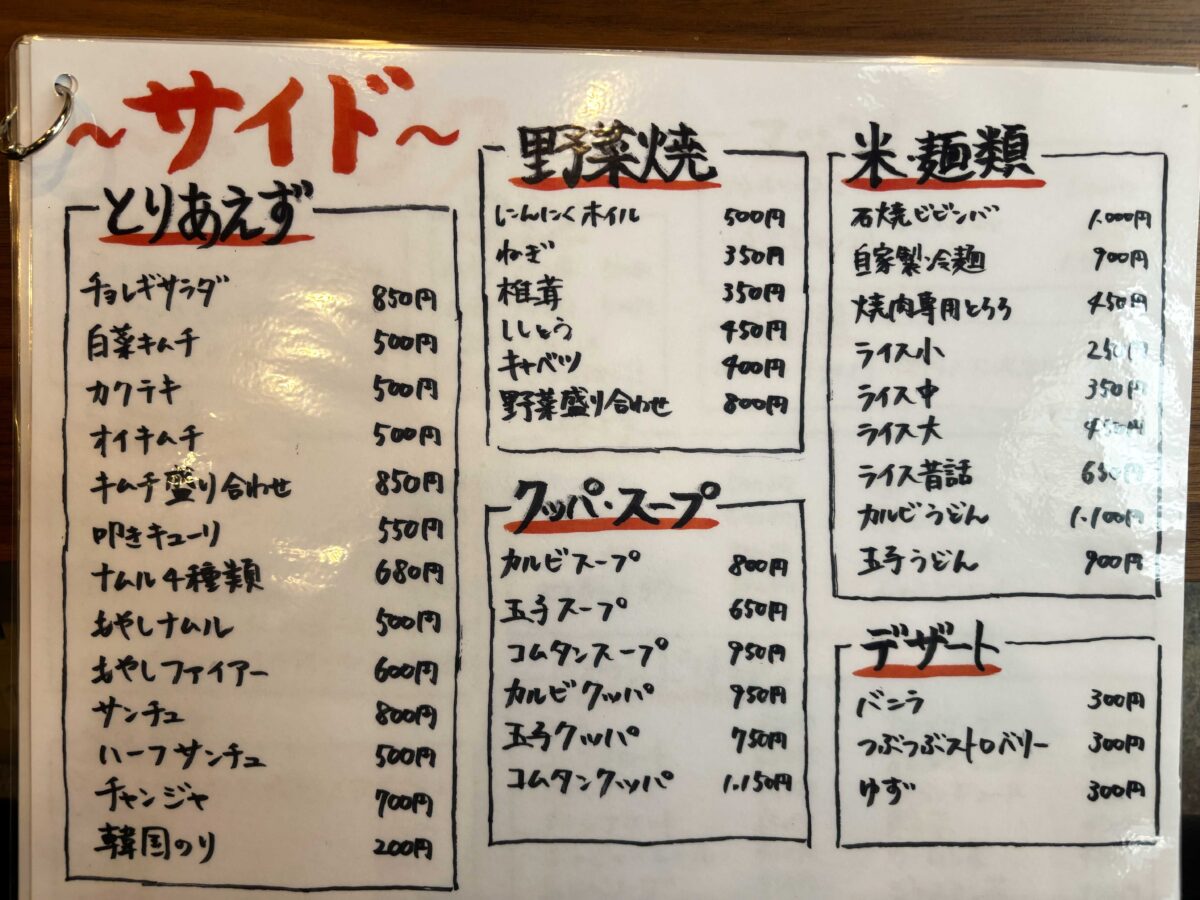 ～サイド～
とりあえず
チョレギサラダ 850円
白菜キムチ 500円
カクテキ 500円
オイキムチ 500円
キムチ盛り合わせ 850円
叩きキューリ 550円
ナムル4種類 680円
もやしナムル 500円
もやしファイアー 600円
サンチュ 800円
ハーフサンチュ 500円
チャンジャ 700円
韓国のり 200円
野菜焼
にんにくホイル 500円
ねぎ 350円
椎茸 350円
ししとう 450円
キャベツ 400円
野菜盛り合わせ 800円
クッパ・スープ
カルビスープ 800円
玉子スープ 650円
コムタンスープ 950円
カルビクッパ 950円
玉子クッパ 750円
コムタンクッパ 1.150円
米・麺類
石焼ビビンバ 1.000円
自家製冷麺 900円
焼肉専用とろろ 450円
ライス小 250円
ライス中 350円
ライス大 450円
ライス昔話 650円
カルビうどん 1.100円
玉子うどん 900円
デザート
バニラ 300円
つぶつぶストロベリー 300円
ゆず 300円